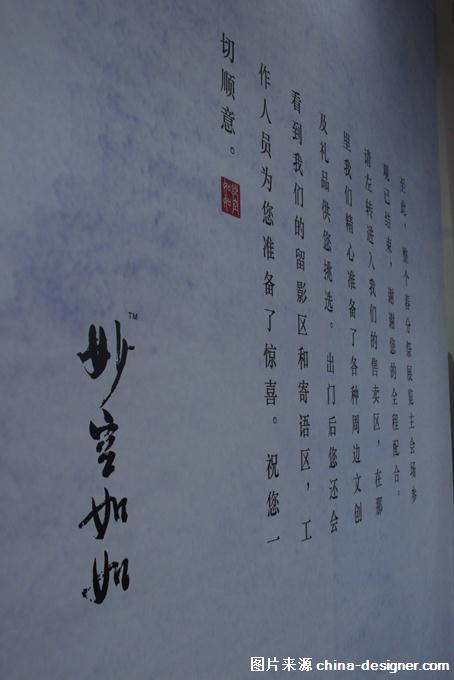 至此，整个春分祭展览主会场参
观已结束，谢谢您的全程配合。
请左转进入我们的售卖区，在那
里我们精心准备了各种周边文创
及礼品供您挑选。出门后您还会
看到我们的留影区和寄语区，工
作人员为您准备了惊喜。祝您一
切顺意。
妙空如如
TM
图片来源 china-designer.com